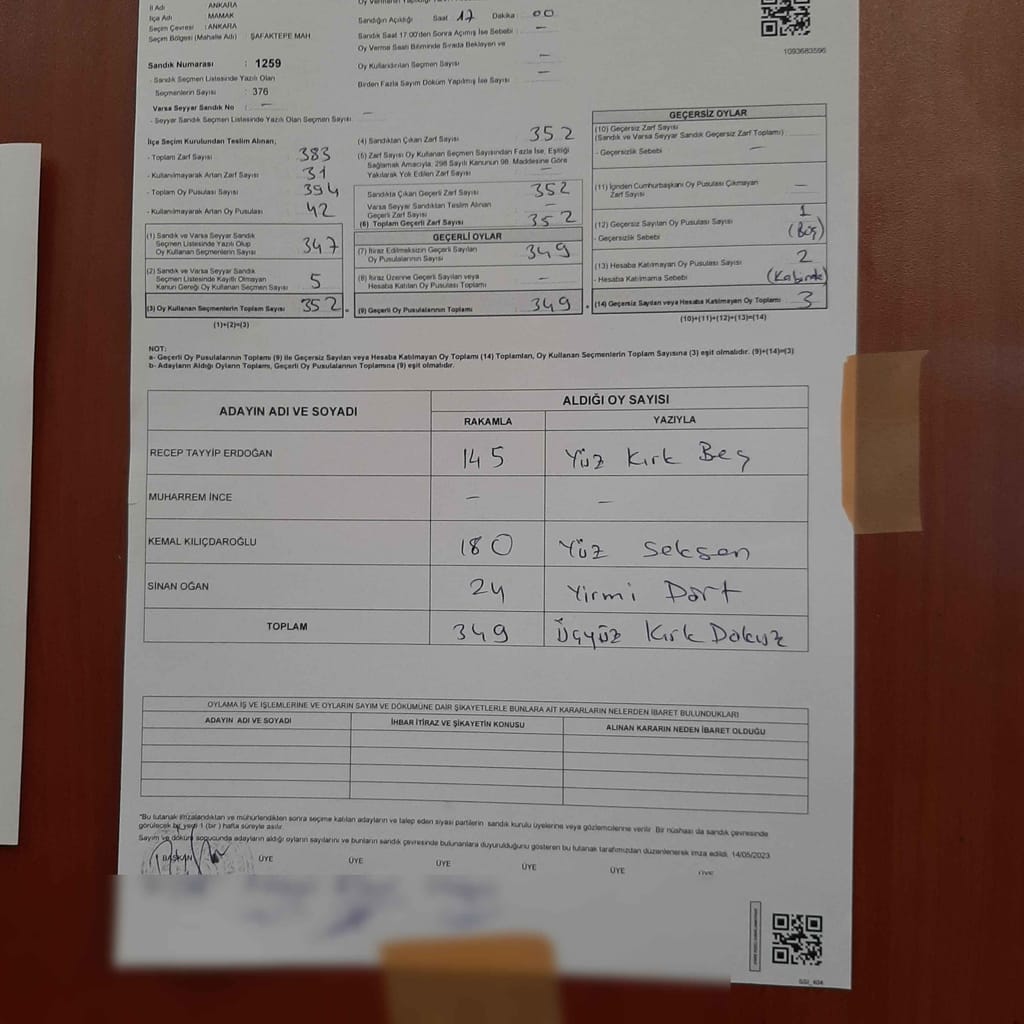 İl Adı : ANKARA
İlçe Adı : MAMAK
Seçim Çevresi : ANKARA
Seçim Bölgesi (Mahalle Adı) : ŞAFAKTEPE MAH
Sandık Numarası : 1259
- Sandık Seçmen Listesinde Yazılı Olan
Seçmenlerin Sayısı : 376
Varsa Seyyar Sandık No : —
- Seyyar Sandık Seçmen Listesinde Yazılı Olan Seçmen Sayısı —
Sandığın Açıldığı Saat 17 Dakika : 00
Sandık Saat 17.00'den Sonra Açılmış İse Sebebi : —
Oy Verme Saati Bitiminde Sırada Bekleyen ve
Oy Kullandırılan Seçmen Sayısı —
Birden Fazla Sayım Döküm Yapılmış İse Sayısı —
1093683596
İlçe Seçim Kurulundan Teslim Alınan,
- Toplam Zarf Sayısı 383
- Kullanılmayarak Artan Zarf Sayısı 31
- Toplam Oy Pusulası Sayısı 394
- Kullanılmayarak Artan Oy Pusulası 42
(1) Sandık ve Varsa Seyyar Sandık
Seçmen Listesinde Yazılı Olup
Oy Kullanan Seçmenlerin Sayısı 347
(2) Sandık ve Varsa Seyyar Sandık
Seçmen Listesinde Kayıtlı Olmayan
Kanun Gereği Oy Kullanan Seçmen Sayısı 5
(3) Oy Kullanan Seçmenlerin Toplam Sayısı 352
(1)+(2)=(3)
(4) Sandıktan Çıkan Zarf Sayısı 352
(5) Zarf Sayısı Oy Kullanan Seçmen Sayısından Fazla İse, Eşitliği
Sağlamak Amacıyla, 298 Sayılı Kanunun 98. Maddesine Göre
Yakılarak Yok Edilen Zarf Sayısı —
Sandıkta Çıkan Geçerli Zarf Sayısı 352
Varsa Seyyar Sandıktan Teslim Alınan
Geçerli Zarf Sayısı —
(6) Toplam Geçerli Zarf Sayısı 352
GEÇERLİ OYLAR
(7) İtiraz Edilmeksizin Geçerli Sayılan
Oy Pusulalarının Sayısı 349
(8) İtiraz Üzerine Geçerli Sayılan veya
Hesaba Katılan Oy Pusulası Toplamı —
(9) Geçerli Oy Pusulalarının Toplamı 349
GEÇERSİZ OYLAR
(10) Geçersiz Zarf Sayısı
(Sandık ve Varsa Seyyar Sandık Geçersiz Zarf Toplamı)
- Geçersizlik Sebebi —
(11) İçinden Cumhurbaşkanı Oy Pusulası Çıkmayan
Zarf Sayısı —
(12) Geçersiz Sayılan Oy Pusulası Sayısı 1
- Geçersizlik Sebebi (Boş)
(13) Hesaba Katılmayan Oy Pusulası Sayısı 2
- Hesaba Katılmama Sebebi (Kabinde)
(14) Geçersiz Sayılan veya Hesaba Katılmayan Oy Toplamı 3
(10)+(11)+(12)+(13)=(14)
NOT:
a- Geçerli Oy Pusulalarının Toplamı (9) ile Geçersiz Sayılan veya Hesaba Katılmayan Oy Toplamı (14) Toplamları, Oy Kullanan Seçmenlerin Toplam Sayısına (3) eşit olmalıdır. (9)+(14)=(3)
b- Adayların Aldığı Oyların Toplamı, Geçerli Oy Pusulalarının Toplamına (9) eşit olmalıdır.
ADAYIN ADI VE SOYADI ALDIĞI OY SAYISI
RAKAMLA YAZIYLA
RECEP TAYYİP ERDOĞAN 145 Yüz Kırk Beş
MUHARREM İNCE — —
KEMAL KILIÇDAROĞLU 180 Yüz Seksen
SİNAN OĞAN 24 Yirmi Dört
TOPLAM 349 Üçyüz Kırk Dokuz
OYLAMA İŞ VE İŞLEMLERİNE VE OYLARIN SAYIM VE DÖKÜMÜNE DAİR ŞİKAYETLERLE BUNLARA AİT KARARLARIN NELERDEN İBARET BULUNDUKLARI
ADAYIN ADI VE SOYADI İHBAR İTİRAZ VE ŞİKAYETİN KONUSU ALINAN KARARIN NEDEN İBARET OLDUĞU
"Bu tutanak imzalandıktan ve mühürlendikten sonra seçime katılan adayların ve talep eden siyasi partilerin sandık kurulu üyelerine veya gözlemcilerine verilir. Bir nüshası da sandık çevresinde
görülecek bir yere 1 (bir) hafta süreyle asılır.
Sayım ve döküm sonucunda adayların aldığı oyların sayılarını ve bunların sandık çevresinde bulunanlara duyurulduğunu gösteren bu tutanak tarafımızdan düzenlenerek imza edildi. 14/05/2023
BAŞKAN ÜYE ÜYE ÜYE ÜYE ÜYE ÜYE